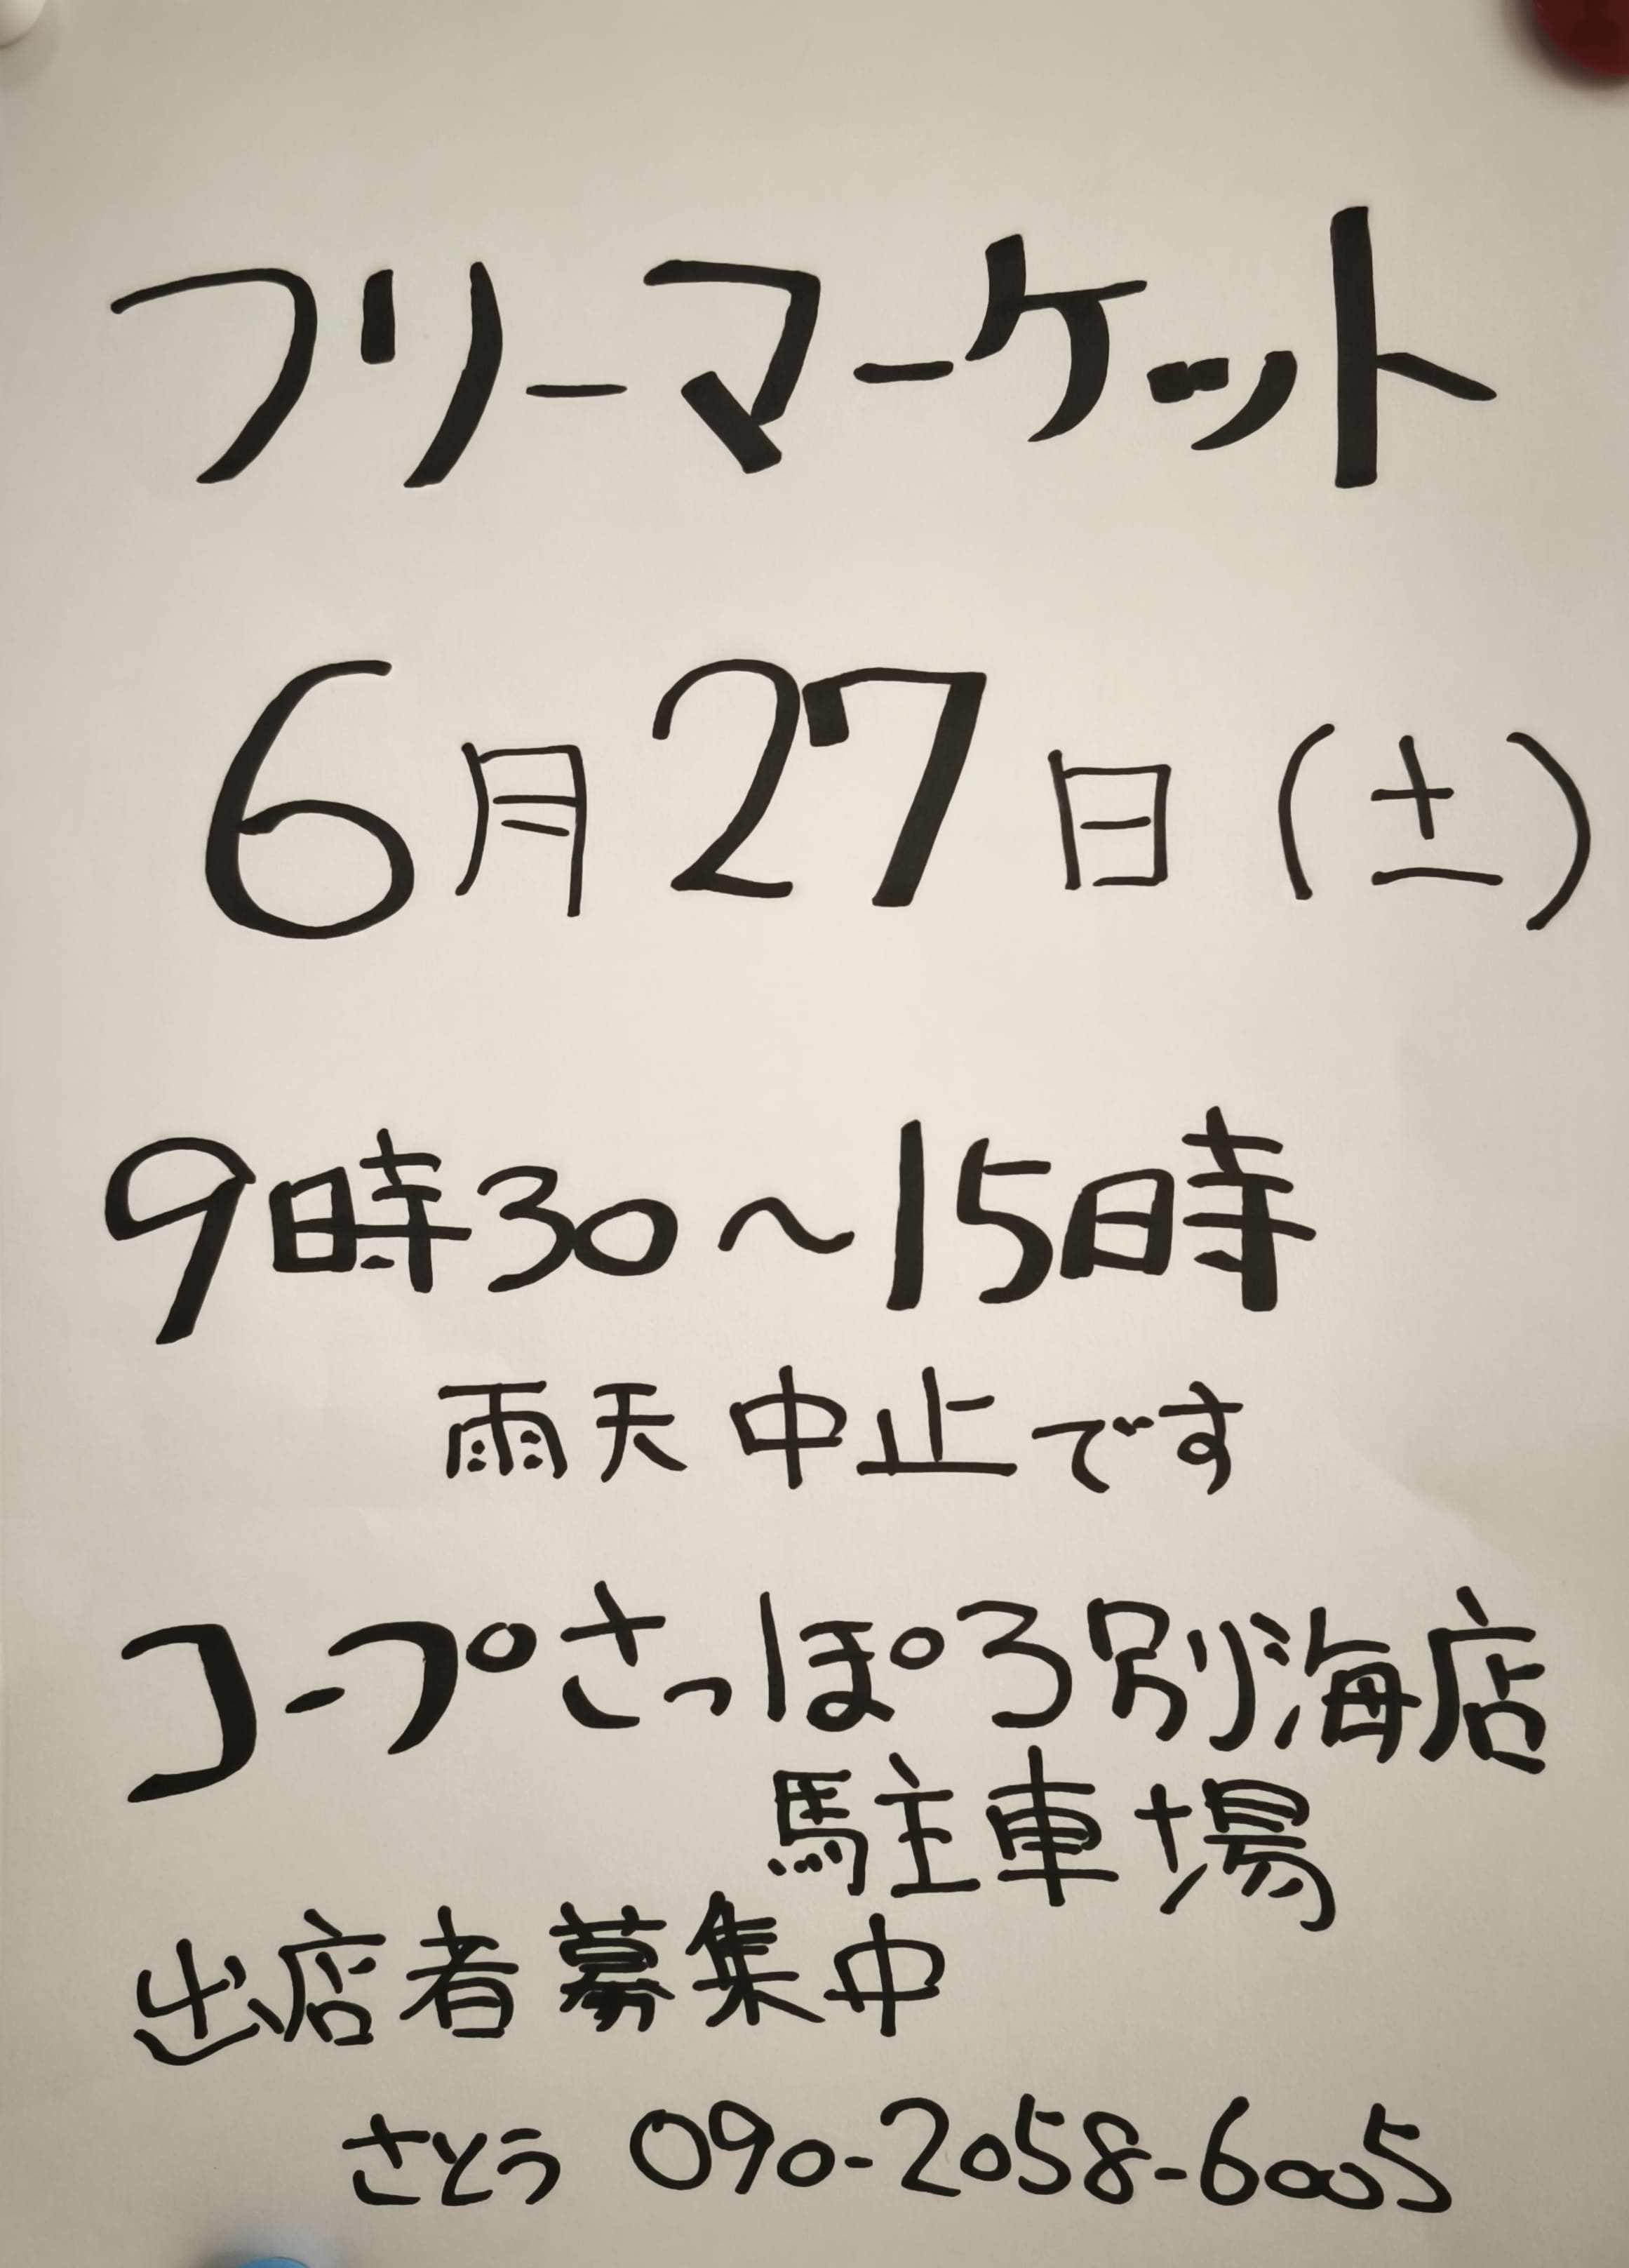 フリーマーケット
6月27日(土)
9時30〜15時
雨天中止です
コープさっぽろ別海店
駐車場
出店者募集中
さとう 090-2058-6005